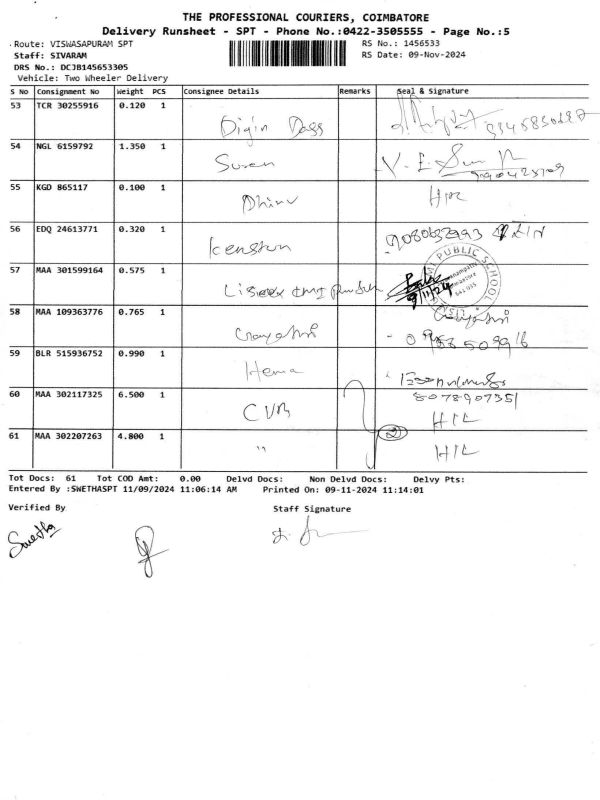 THE PROFESSIONAL COURIERS, COIMBATORE
Delivery Runsheet - SPT - Phone No.:0422-3505555 - Page No.:5
Route: VISWASAPURAM SPT
RS No.: 1456533
Staff: SIVARAM
RS Date: 09-Nov-2024
DRS No.: DCJB145653305
Vehicle: Two Wheeler Delivery
S No Consignment No Weight PCS Consignee Details Remarks Seal & Signature
53 TCR 30255916 0.120 1
Digin Dass
54 NGL 6159792 1.350 1
Susen
55 KGD 865117 0.100 1
Dhinu
56 EDQ 24613771 0.320 1
57 MAA 301599164 0.575 1
PUBLIC SCHOOL
9/11/24
58 MAA 109363776 0.765 1
59 BLR 515936752 0.990 1
Hema
60 MAA 302117325 6.500 1
8078907351
CVR
61 MAA 302207263 4.800 1
"
2
Tot Docs: 61 Tot COD Amt: 0.00 Delvd Docs: Non Delvd Docs: Delvy Pts:
Entered By :SWETHASPT 11/09/2024 11:06:14 AM Printed On: 09-11-2024 11:14:01
Verified By Staff Signature
Swetha